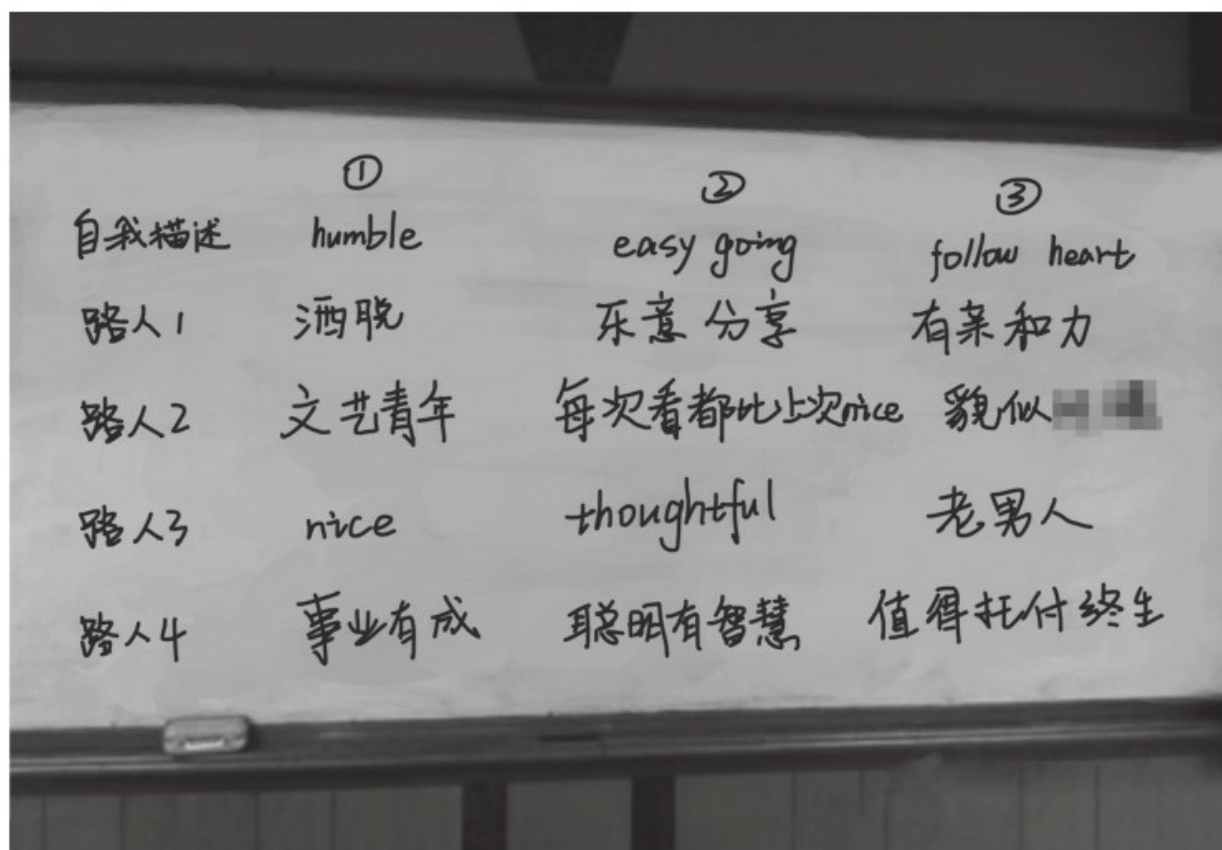 ① ② ③
自我描述 humble easy going follow heart
路人1 洒脱 乐意分享 有亲和力
路人2 文艺青年 每次看都比上次nice 貌似
路人3 nice thoughtful 老男人
路人4 事业有成 聪明有智慧 值得托付终生